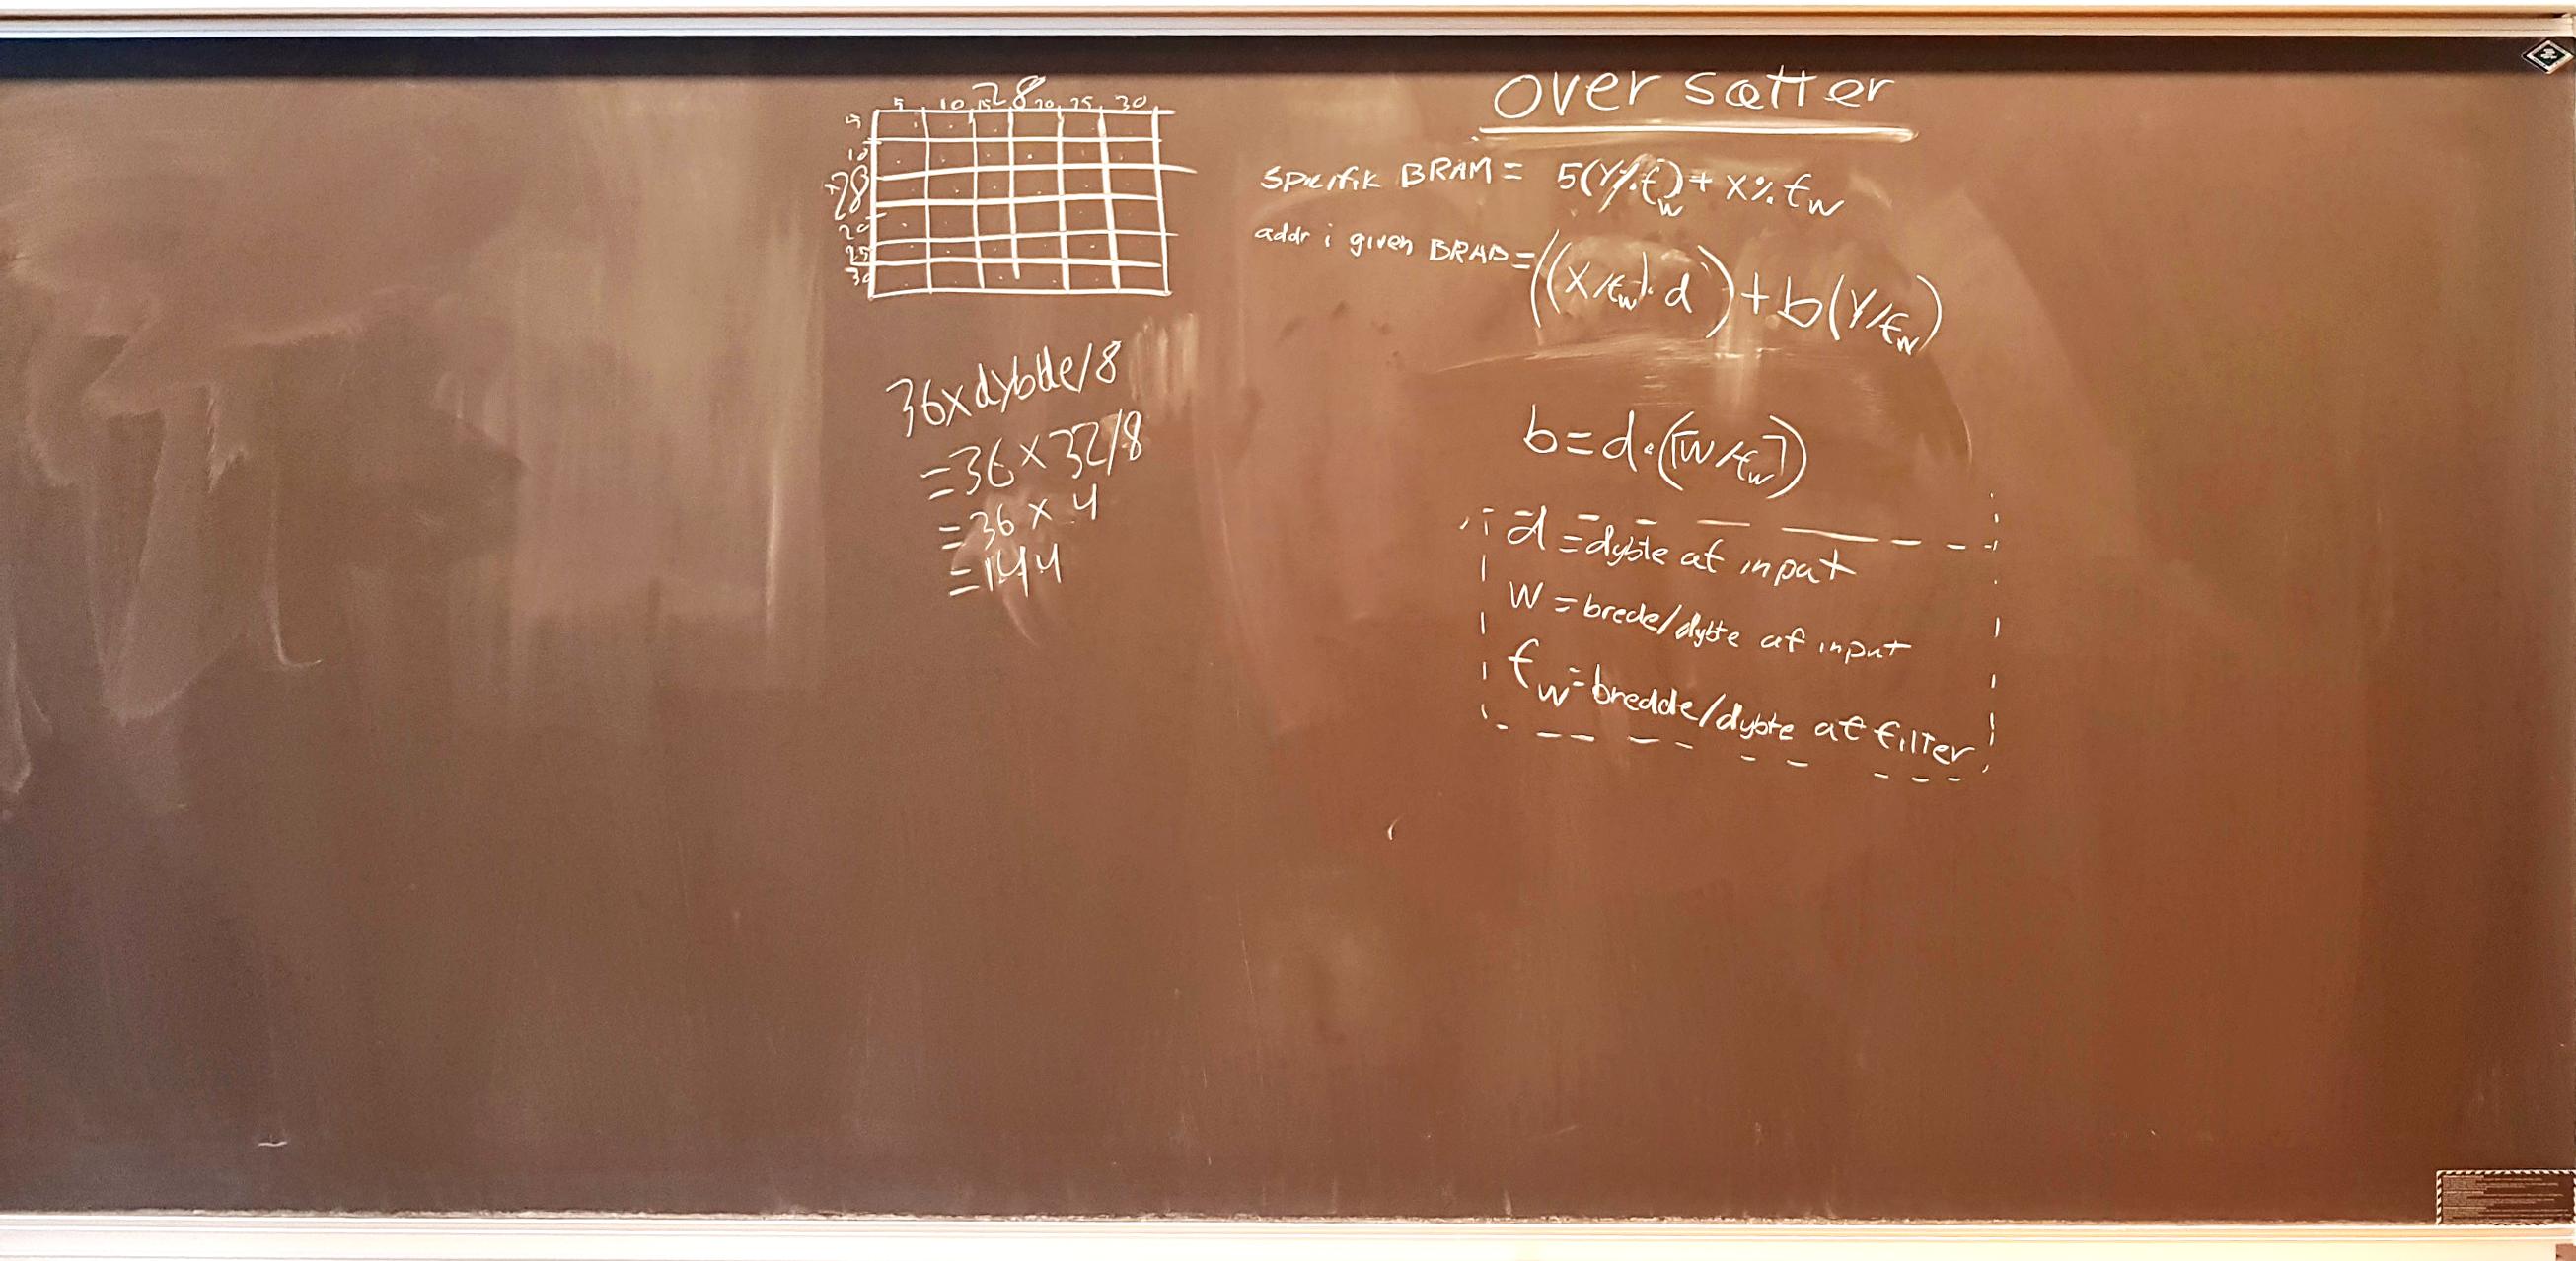 28
5 10 15 20 25 30
5
10
28
20
25
30
36xdybde/8
=36x32/8
=36x4
=144
over sætter
Specifik BRAM = 5(Y%fw)+ X%fw
addr i given BRAM = ((X/fw)·d)+b(Y/fw)
b=d·(⌈W/fw⌉)
d = dybde af input
W = brede/dybte af input
fw = bredde/dybte af filter